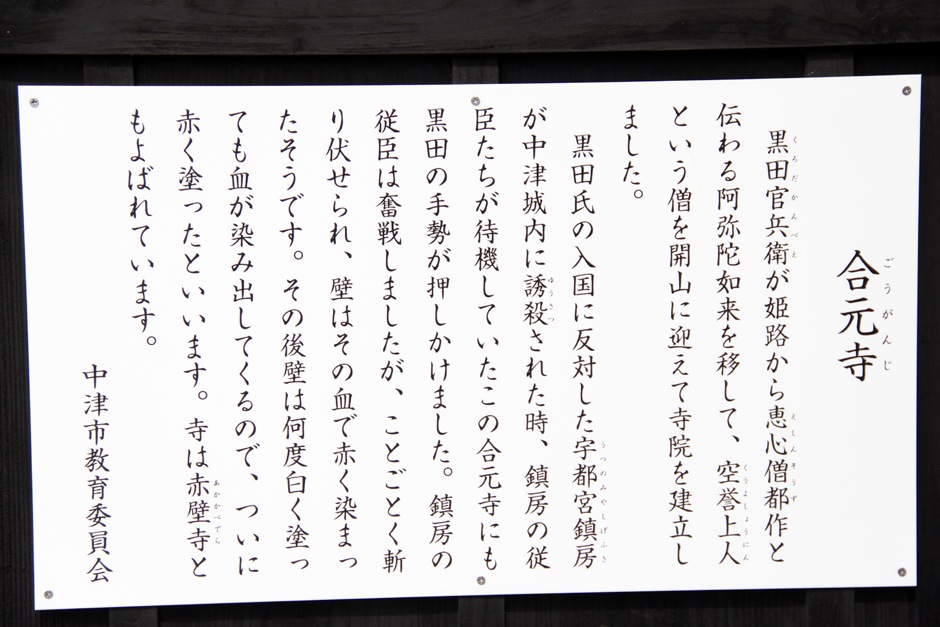 合元寺
ごうがんじ
黒田官兵衛が姫路から恵心僧都作と
くろだかんべえ
えしんそうず
伝わる阿弥陀如来を移して、空誉上人
くうよしょうにん
という僧を開山に迎えて寺院を建立し
ました。
黒田氏の入国に反対した宇都宮鎮房
うつのみやしげふさ
が中津城内に誘殺された時、鎮房の従
ゆうさつ
臣たちが待機していたこの合元寺にも
黒田の手勢が押しかけました。鎮房の
従臣は奮戦しましたが、ことごとく斬
り伏せられ、壁はその血で赤く染まっ
たそうです。その後壁は何度白く塗っ
ても血が染み出してくるので、ついに
赤く塗ったといいます。寺は赤壁寺と
あかかべでら
もよばれています。
中津市教育委員会